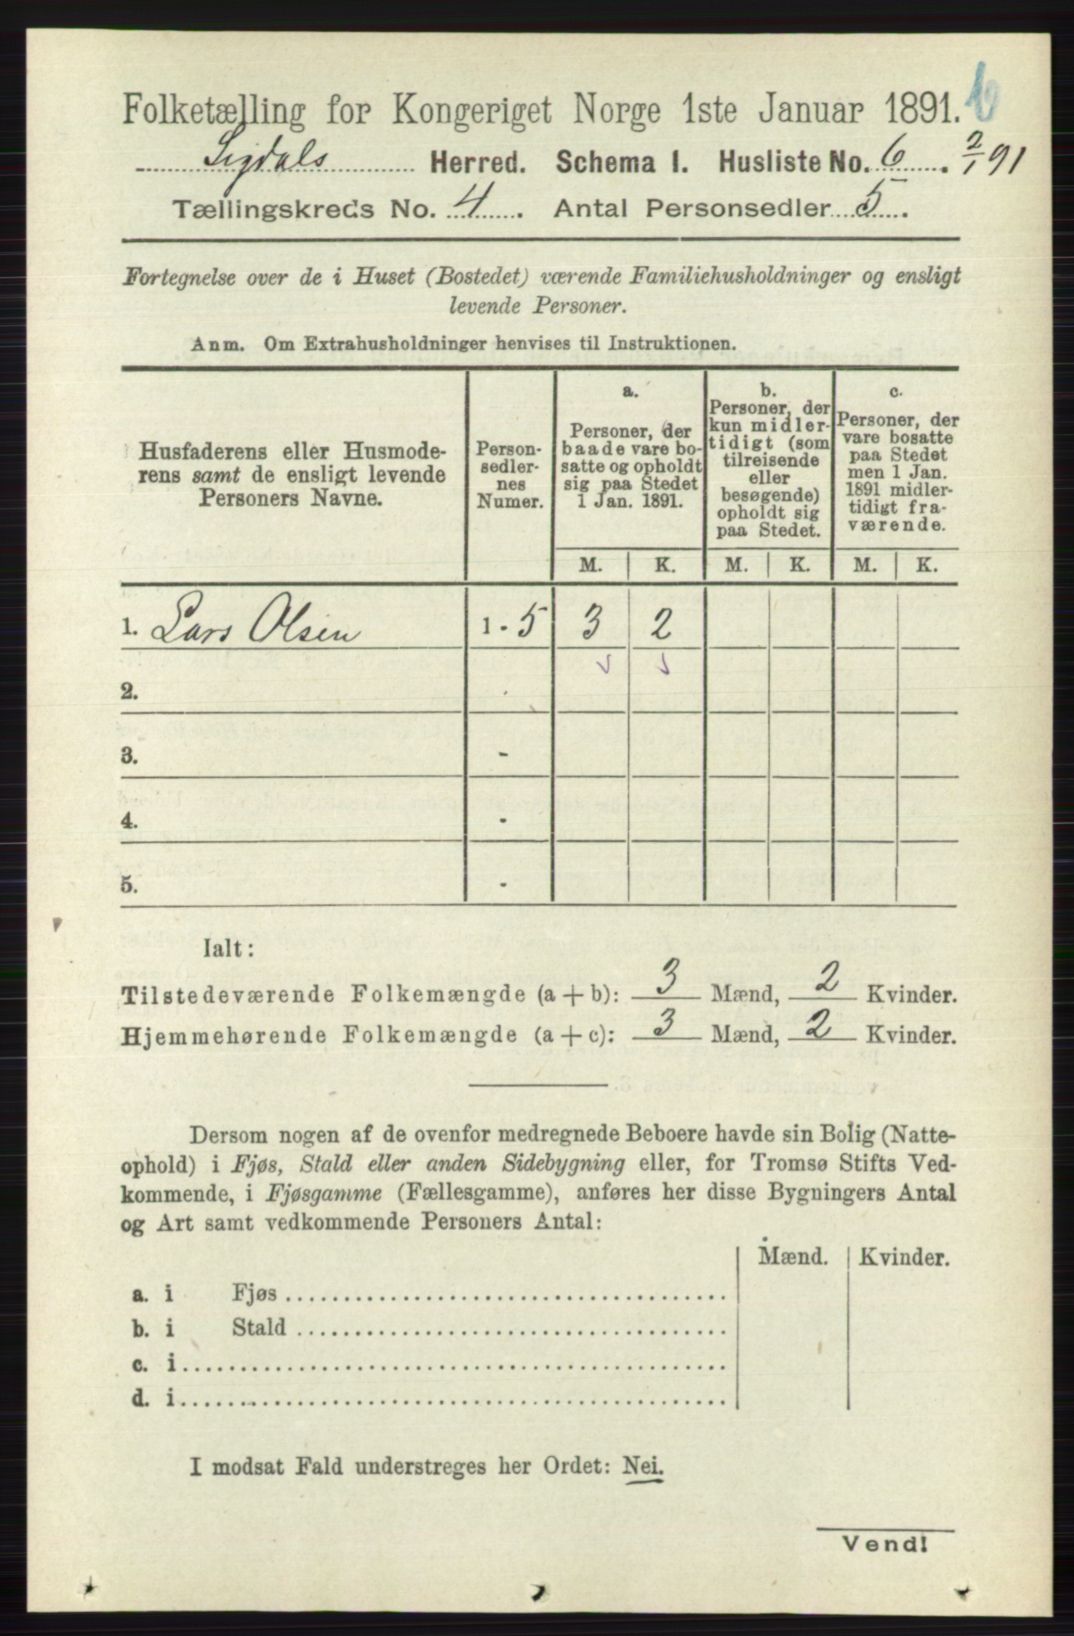 Folketælling for Kongeriget Norge 1ste Januar 1891.
Sigdals Herred. Schema I. Husliste No. 6. 2/1 91
Tællingskreds No. 4. Antal Personsedler 5.
Fortegnelse over de i Huset (Bostedet) værende Familiehusholdninger og ensligt
levende Personer.
Anm. Om Extrahusholdninger henvises til Instruktionen.
Husfaderens eller Husmode-
rens samt de ensligt levende
Personers Navne.
Person-
sedler-
nes
Numer.
a.
Personer, der
baade vare bo-
satte og opholdt
sig paa Stedet
1 Jan. 1891.
b.
Personer, der
kun midler-
tidigt (som
tilreisende
eller
besøgende)
opholdt sig
paa Stedet.
c.
Personer, der
vare bosatte
paa Stedet
men 1 Jan.
1891 midler-
tidigt fra-
værende.
M. K. M. K. M. K.
1. Lars Olsen 1 - 5 3 2
2.
3. -
4. -
5. -
Ialt:
Tilstedeværende Folkemængde (a + b): 3 Mænd, 2 Kvinder.
Hjemmehørende Folkemængde (a + c): 3 Mænd, 2 Kvinder.
Dersom nogen af de ovenfor medregnede Beboere havde sin Bolig (Natte-
ophold) i Fjøs, Stald eller anden Sidebygning eller, for Tromsø Stifts Ved-
kommende, i Fjøsgamme (Fællesgamme), anføres her disse Bygningers Antal
og Art samt vedkommende Personers Antal:
Mænd. Kvinder.
a. i Fjøs
b. i Stald
c. i
d. i
I modsat Fald understreges her Ordet: Nei.
Vend!